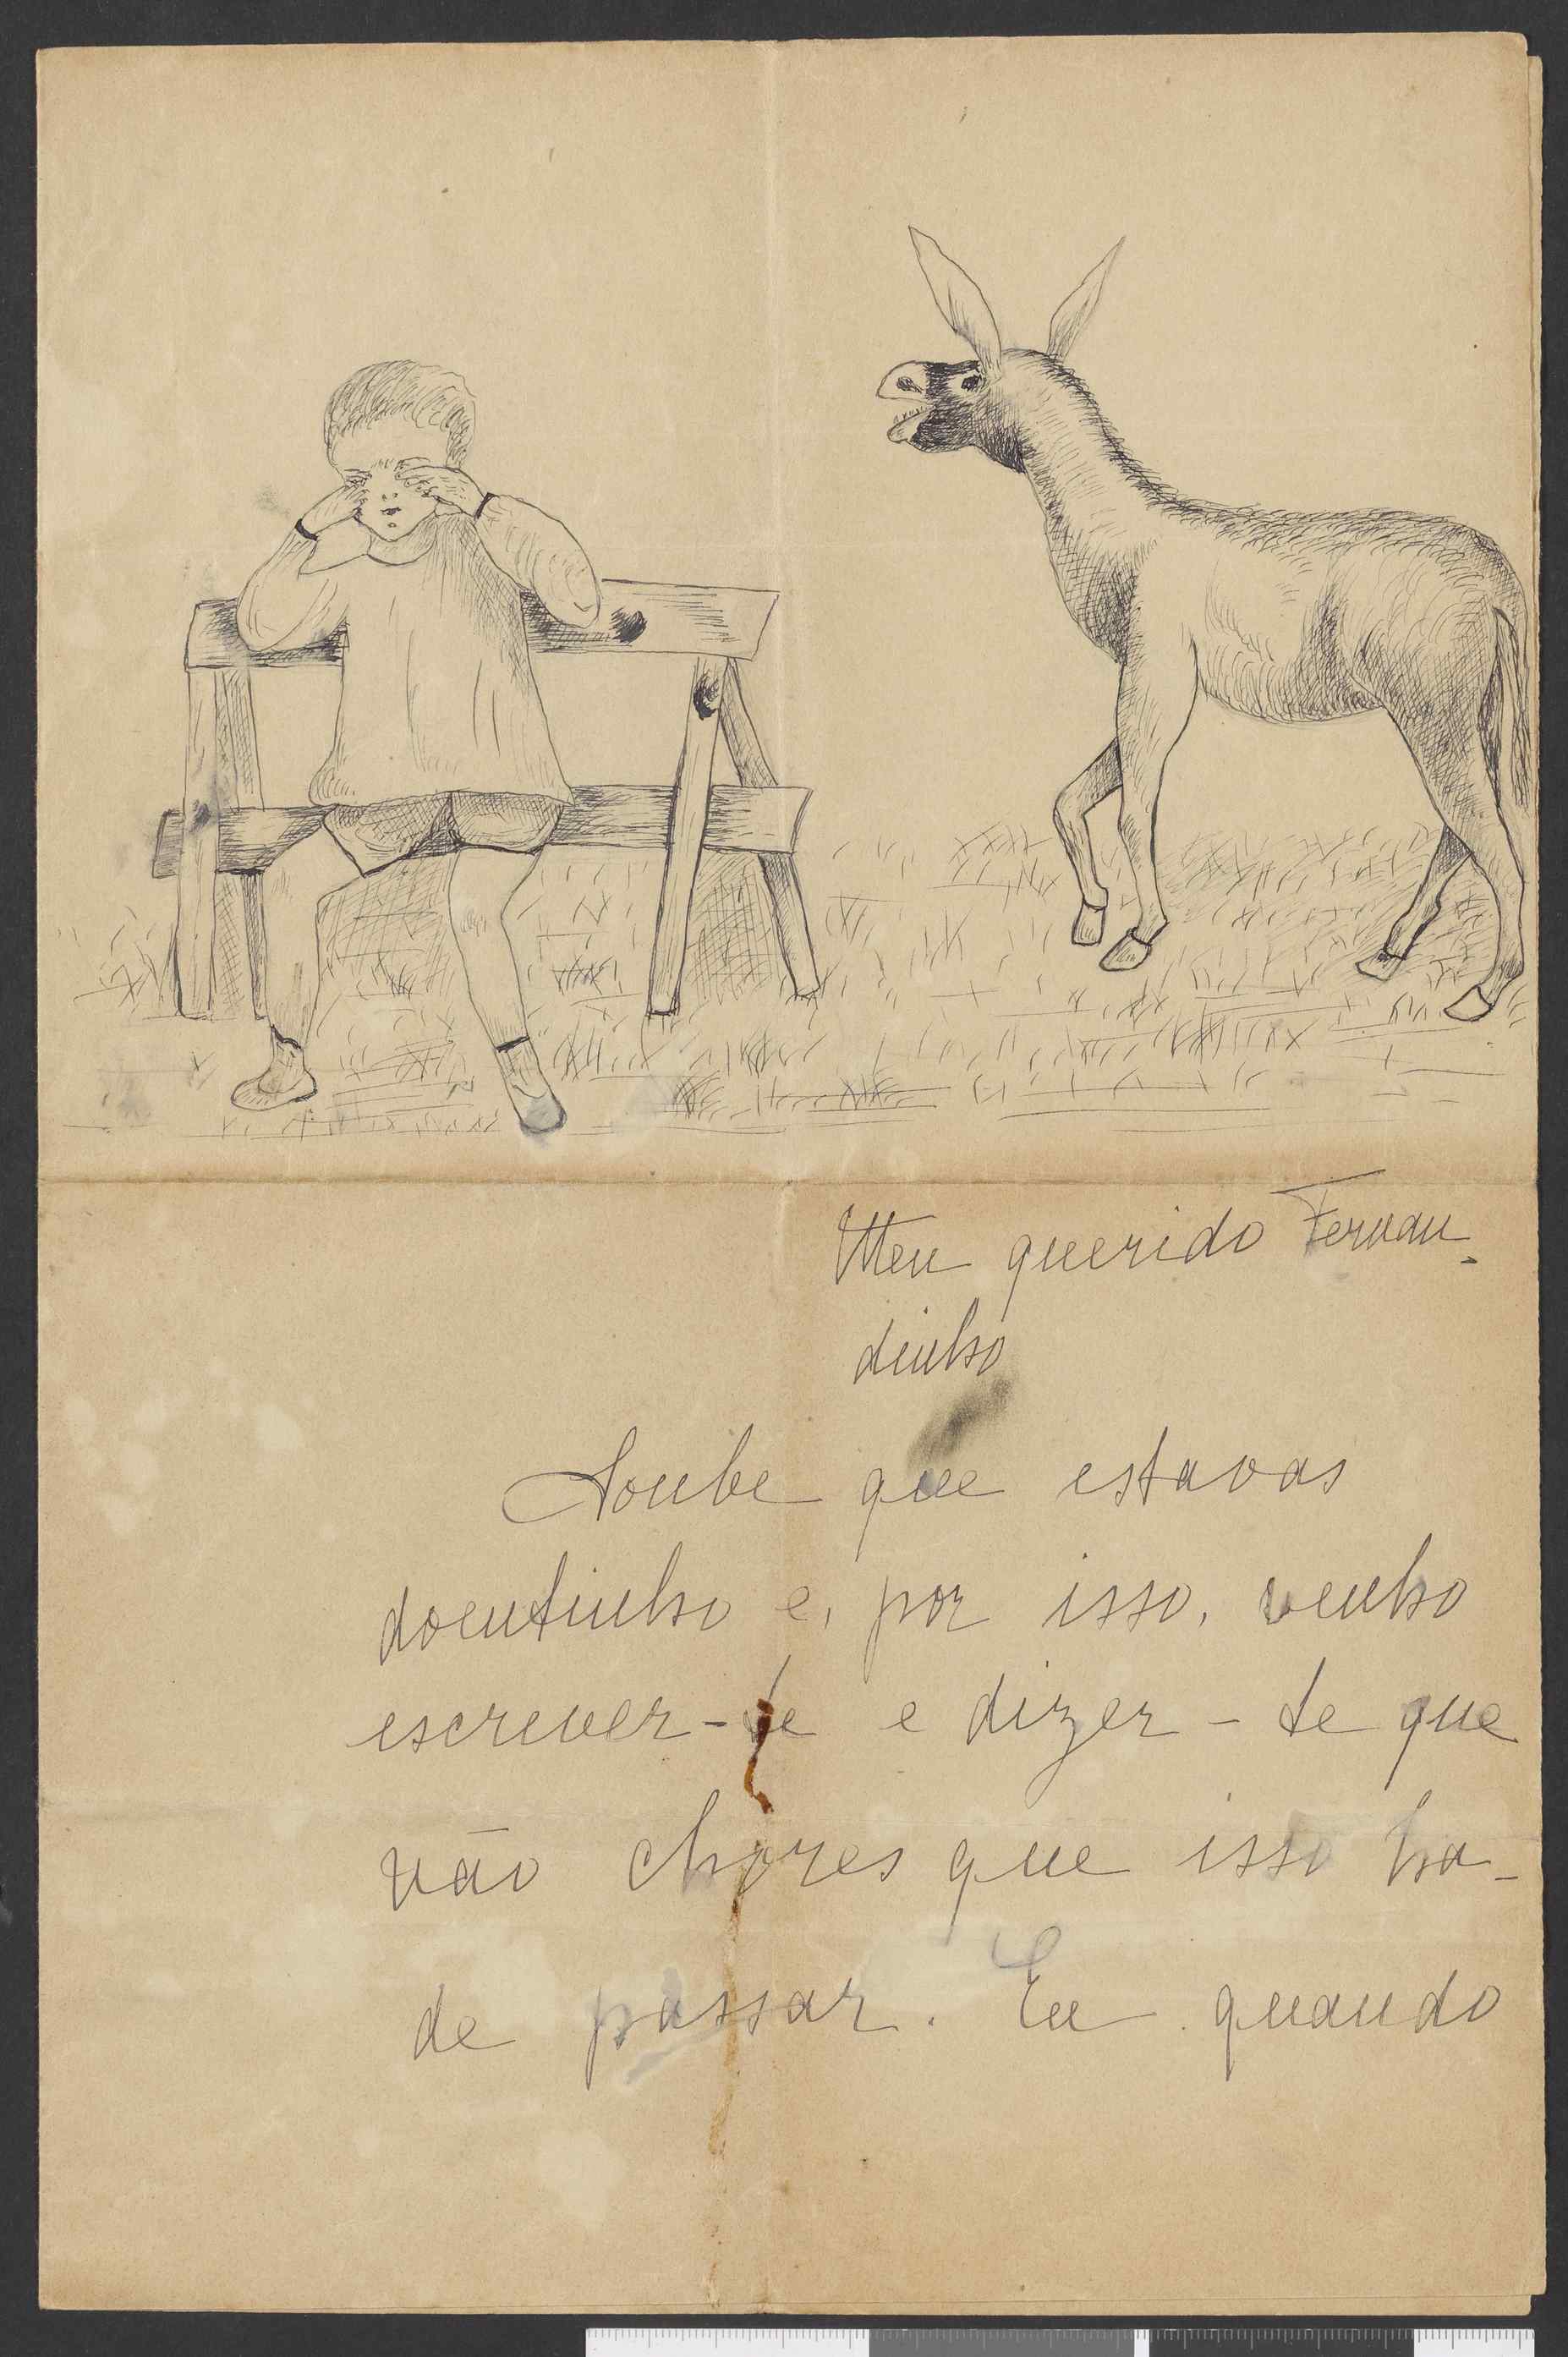 Meu querido Fernan-
dinho
Soube que estavas
doentinho e, por isso, venho
escrever-te e dizer-te que
não chores que isso ha-
de passar. Eu quando